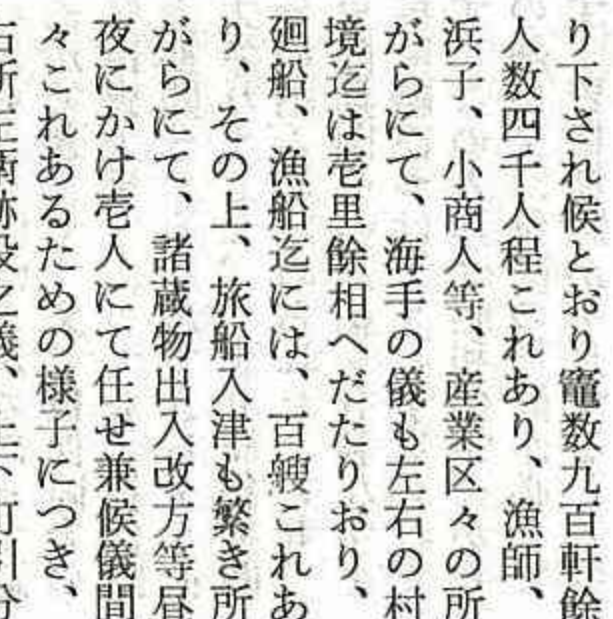 り下され候とおり竈数九百軒餘
人数四千人程これあり、漁師、
浜子、小商人等、産業区々の所
がらにて、海手の儀も左右の村
境迄は壱里餘相へだたりおり、
廻船、漁船迄には、百艘これあ
り、その上、旅船入津も繁き所
がらにて、諸蔵物出入改方等昼
夜にかけ壱人にて任せ兼候儀間
々これあるための様子につき、